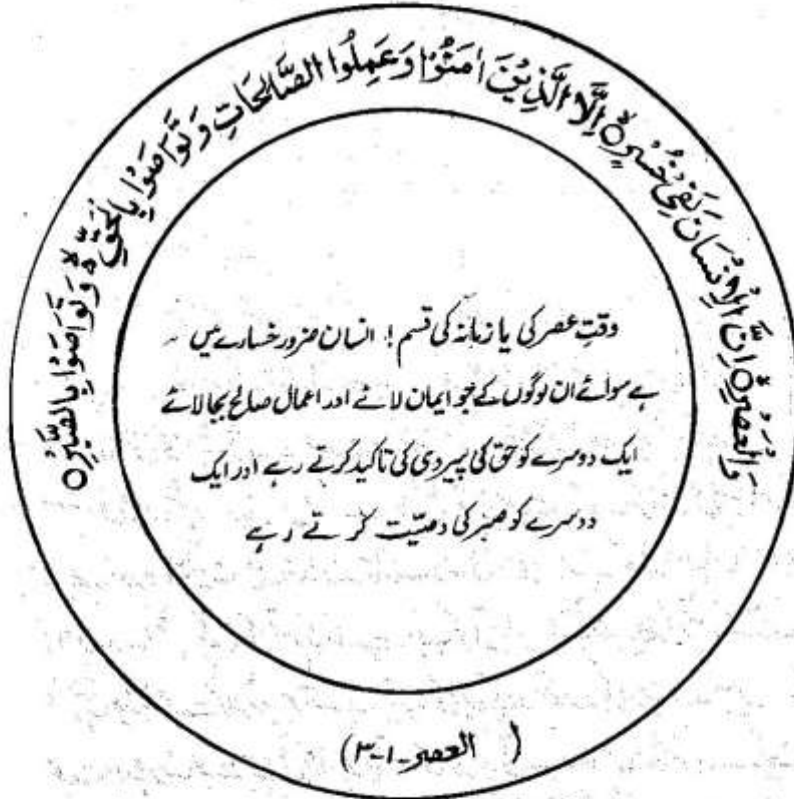 وَالْعَصْرِ ○ اِنَّ الْاِنْسَانَ لَفِیْ خُسْرٍ ○ اِلَّا الَّذِیْنَ اٰمَنُوْا وَعَمِلُوا الصَّالِحَاتِ وَتَوَاصَوْا بِالْحَقِّ ۙ وَتَوَاصَوْا بِالصَّبْرِ ○
وقتِ عصر کی یا زمانہ کی قسم! انسان ضرور خسارے میں ۔
ہے سوائے ان لوگوں کے جو ایمان لائے اور اعمال صالح بجا لائے
ایک دوسرے کو حق کی پیروی کی تاکید کرتے رہے اور ایک
دوسرے کو صبر کی وصیّت کرتے رہے
( العصر-۱-۳)